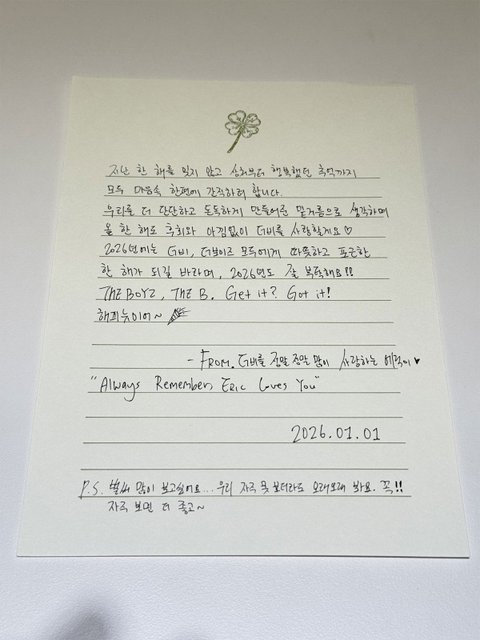 지난 한 해를 잊지 않고 상처부터 행복했던 추억까지
모두 마음속 한편에 간직하려 합니다.
우리를 더 단단하고 돈독하게 만들어준 밑거름으로 생각하며
올 한 해도 후회와 아낌없이 더비를 사랑할게요♡
2026년에는 더비, 더보이즈 모두에게 따뜻하고 포근한
한 해가 되길 바라며, 2026년도 잘 부탁해요!!
THE BOYZ, THE B. Get it? Got it!
해피뉴이어~
- FROM. 더비를 정말 정말 많이 사랑하는 에릭이 ♥
"Always Remember, Eric Loves You"
2026.01.01
P.S. 벌써 많이 보고싶어요... 우리 자주 못 보더라도 오래오래 봐요. 꼭!!
자주 보면 더 좋고~